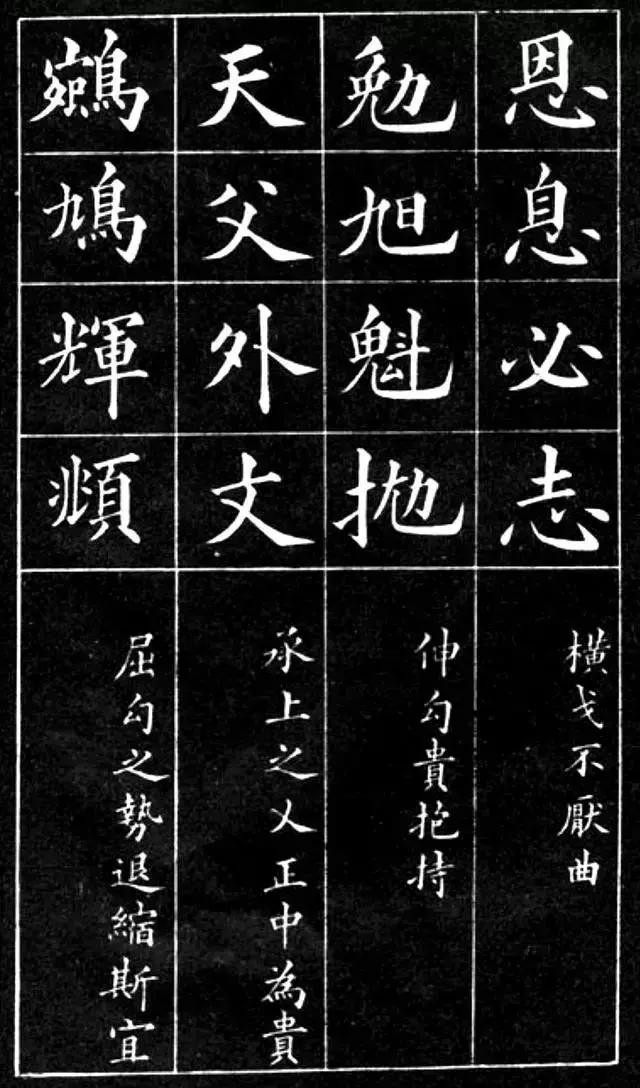 恩息必志
橫戈不厭曲
勉旭魁抛
伸勾貴抱持
天父外丈
承上之乂正中為貴
鳩輝頫
屈勾之勢退縮斯宜